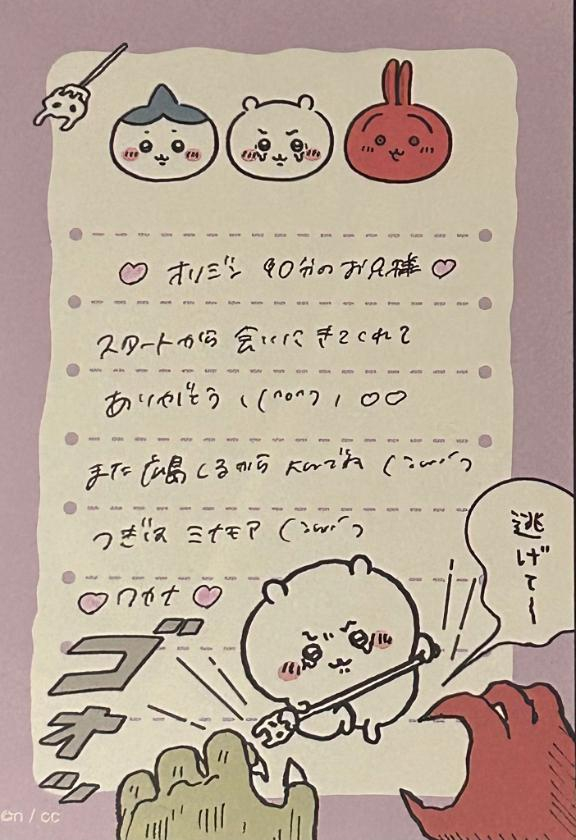 ♡ オリジン 90分の お兄様 ♡
スタートから 会いに きてくれて
ありがとう \(^o^)/ ♡♡
また 広島 くるから
つぎは ミナモア
♡ワカナ♡
逃げてー
ゴオッ
on / cc